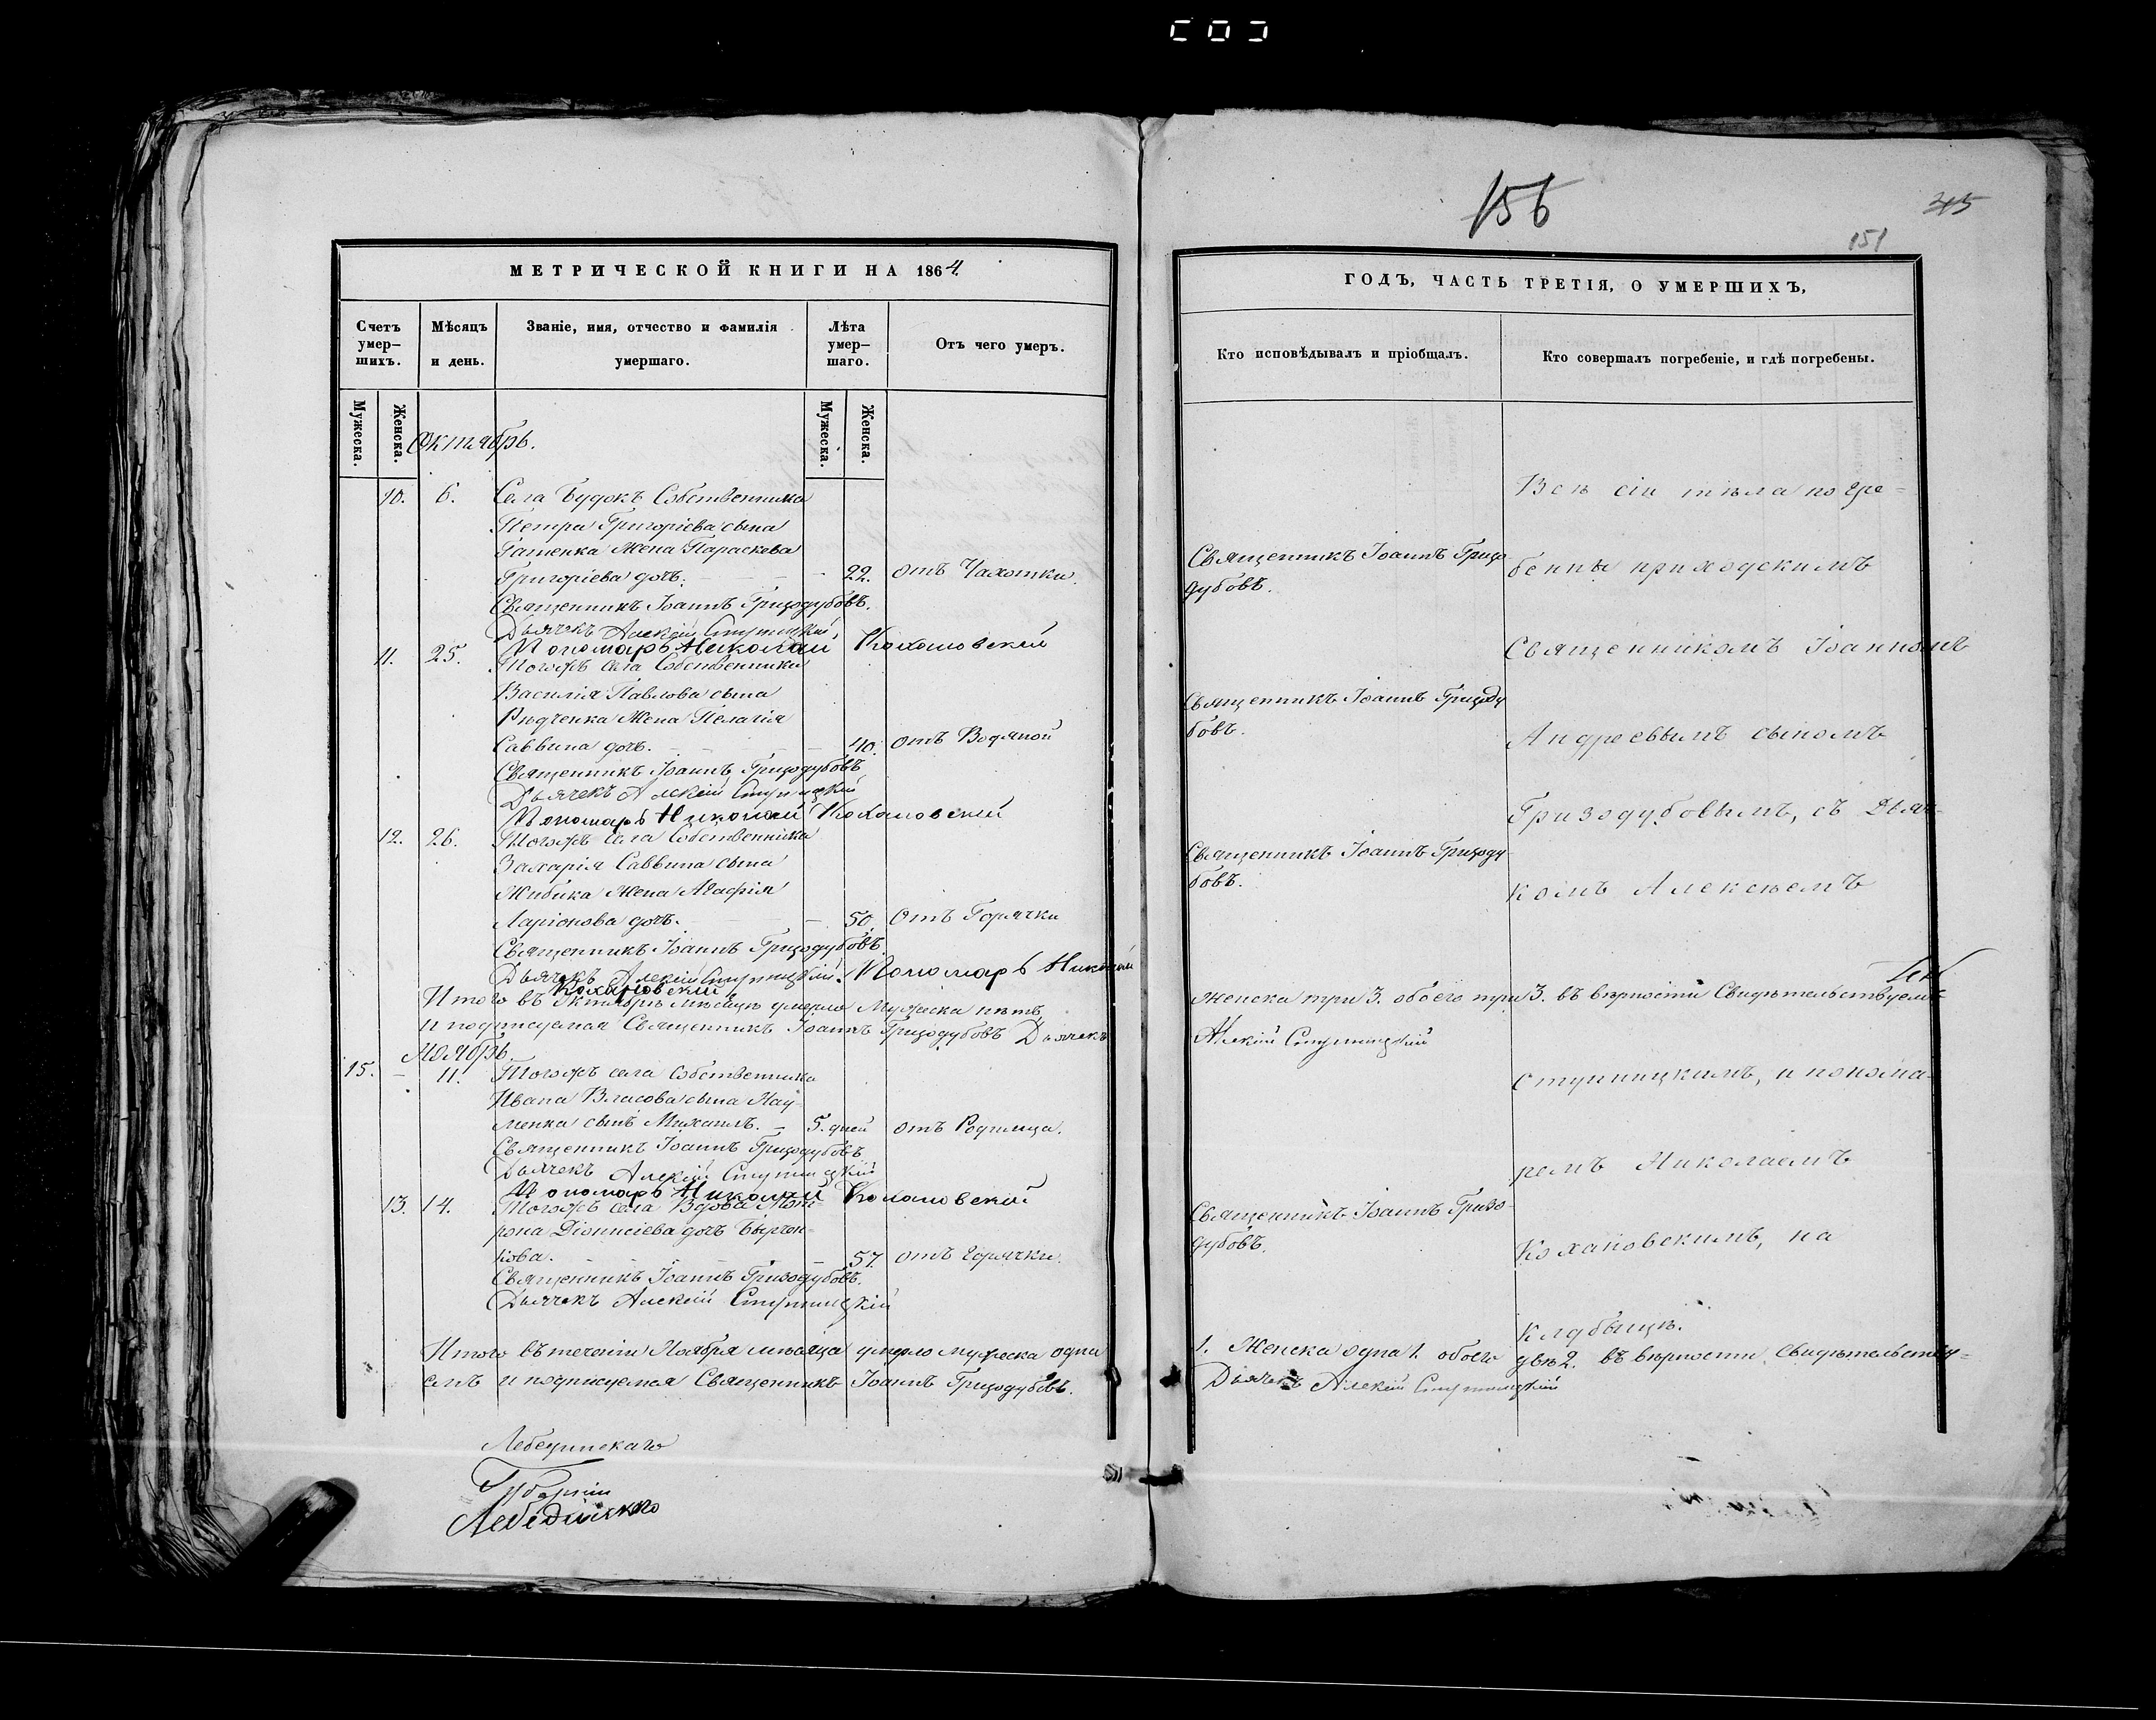 156
315
151
МЕТРИЧЕСКОЙ КНИГИ НА 1864.
Счетъ умер-шихъ.
Мѣсяцъ и день.
Званіе, имя, отчество и фамилія умершаго.
Лѣта умер-шаго.
Отъ чего умеръ.
Мужеска.
Женска.
Мужеска.
Женска.
Октябрь.
10. 6. Села Будокъ Собственника
Петра Григоріева сына
Гатенка жена Параскева
Григоріева дочь. 22. отъ Чахотки.
Священникъ Іоаннъ Гризодубовъ.
Дьячекъ Алексій Ступницкій,
Пономарь Николай Кохановскій
11. 25. Тогожъ села Собственника
Василія Павлова сына
Рѣдченка жена Пелагія
Саввина дочь. 40. отъ Водяной
Священникъ Іоаннъ Гризодубовъ
Дьячекъ Алексій Ступницкій
Пономарь Николай Кохановскій
12. 26. Тогожъ села Собственника
Захарія Саввина сына
Жибика жена Агафія
Ларіонова дочь. 50. Отъ Горячки
Священникъ Іоаннъ Гризодубовъ
Дьячекъ Алексій Ступницкій. Пономарь Николай
Кохановскій
Итого въ Октябрѣ мѣсяцѣ умерло Мужеска нѣтъ,
и подписуемся Священникъ Іоаннъ Гризодубовъ Дьячекъ
Ноябрь.
15. – 11. Тогожъ села Собственника
Ивана Власова сына Нау-
менка сынъ Михаилъ. – 5. дней отъ Родимца.
Священникъ Іоаннъ Гризодубовъ
Дьячекъ Алексій Ступницкій
Пономарь Николай Кохановскій
13. 14. Тогожъ села Вдова Мот-
рона Діонисіева дочь
кова. 57. отъ Горячки.
Священникъ Іоаннъ Гризодубовъ.
Дьячекъ Алексій Ступницкій
Итого въ теченіи Ноября мѣсяца умерло мужеска одинъ
емъ и подписуемся Священникъ Іоаннъ Гризодубовъ.
Лебединскаго
Губерніи
ГОДЪ, ЧАСТЬ ТРЕТІЯ, О УМЕРШИХЪ,
Кто исповѣдывалъ и пріобщалъ.
Кто совершалъ погребеніе, и гдѣ погребены.
Всѣ сіи тѣла погре-
Священникъ Іоаннъ Гризо-
дубовъ.
бенны приходскимъ
Священникомъ Іоанномъ
Священникъ Іоаннъ Гризоду
бовъ.
Андреевымъ сыномъ
Гризодубовымъ, съ Дьяч-
Священникъ Іоаннъ Гризоду-
бовъ.
комъ Алексѣемъ
женска три 3. обоего три 3. въ вѣрности Свидѣтельствуемъ
Алексій Ступницкій
Ступницкимъ, и понома-
ремъ Николаемъ
Священникъ Іоаннъ Гризо-
дубовъ.
Кохановскимъ, на
кладбищѣ.
1. Женска одна 1. обоего двѣ 2. въ вѣрности Свидѣтельству-
Дьячекъ Алексій Ступницкій